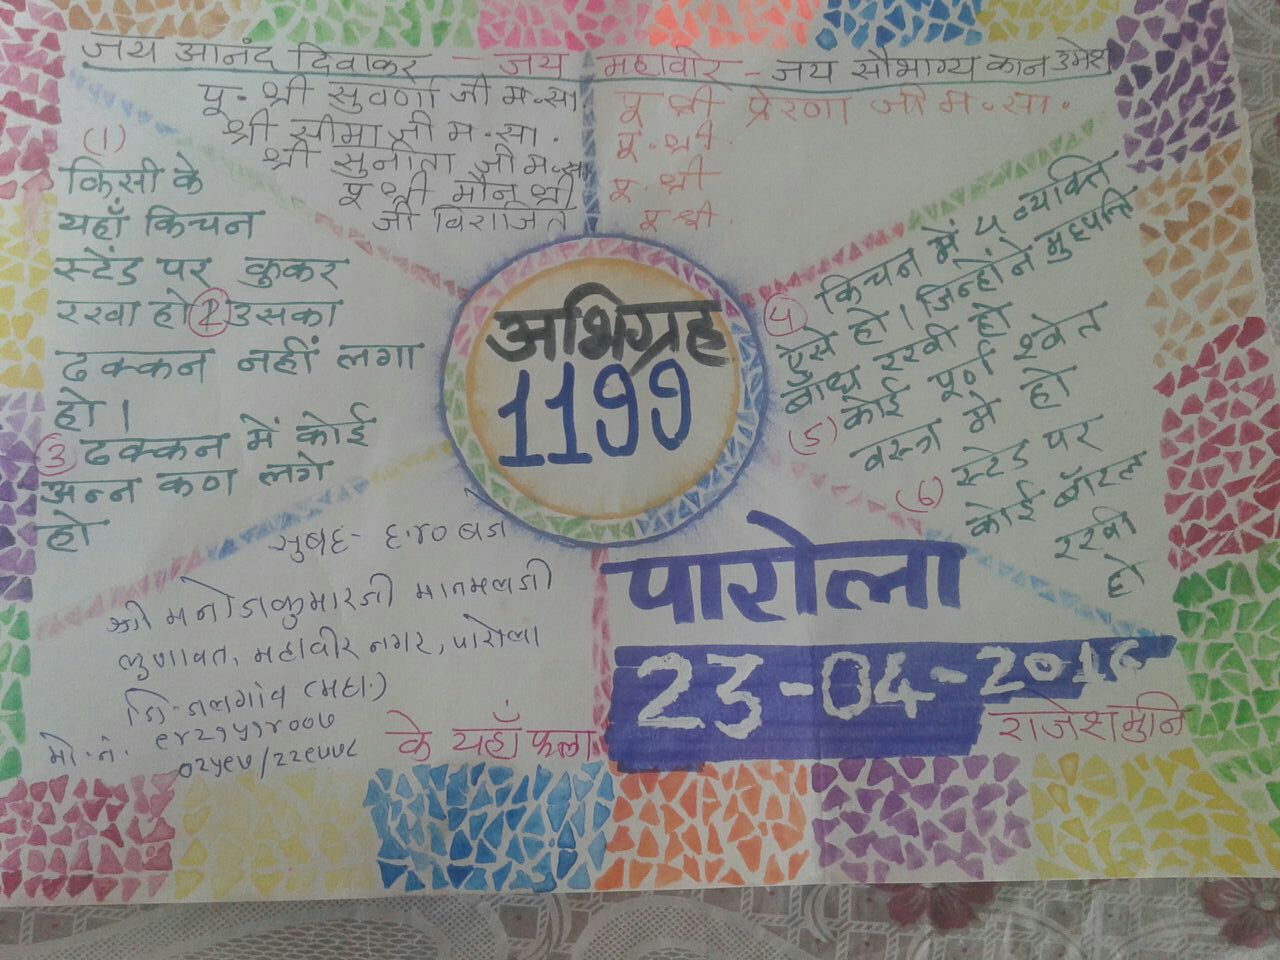 जय आनंद दिवाकर - जय महावीर - जय सौभाग्य कान उमेश
पू. श्री सुवर्णा जी म.सा
श्री सीमा जी म.सा.
श्री सुनीता जी म.सा
पू श्री मौन श्री
जी विराजित
पू श्री प्रेरणा जी म.सा.
पू. श्री
पू. श्री
पू श्री.
(1)
किसी के
यहाँ किचन
स्टेंड पर कुकर
रखा हो (2) उसका
ढक्कन नहीं लगा
हो।
(3) ढक्कन में कोई
अन्न कण लगे
हो
अभिग्रह
1199
(4) किचन में ५ व्यक्ति
ऐसे हो। जिन्होंने मुहपत्ति
बांध रखी हो
(5) कोई पूर्ण श्वेत
वस्त्र में हो
(6) स्टेड पर
कोई बॉटल
रखी
हो
सुबह- ६.४० बजे
श्री मनोजकुमारजी मानमलजी
लुणावत, महावीर नगर, पारोला
जि-जलगांव (महा.)
मो.नं. ९४२१५१४००७
०२५९७/२२९७७८
के यहाँ फला
पारोला
23-04-2018
राजेशमुनि